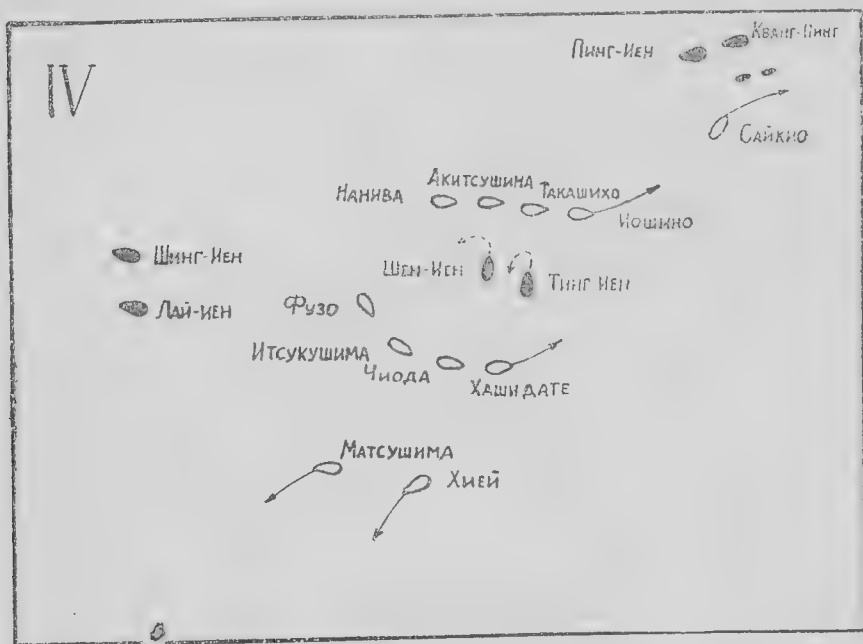 IV
Пинг-Иен
Кванг-Пинг
Сайкио
Нанива
Акитсушима
Такашихо
Иошино
Шинг-Иен
Шен-Иен
Тинг Иен
Лай-Иен
Фузо
Итсукушима
Чиода
Хашидате
Матсушима
Хией